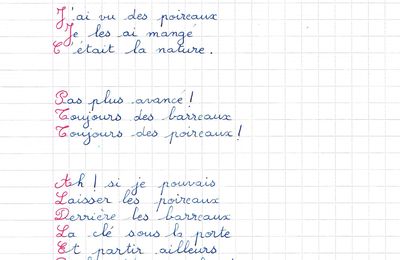 J'ai vu des poireaux
Je les ai mangé
C'était la nature.
Pas plus avancé !
Toujours des barreaux
Toujours des poireaux !
Ah ! si je pouvais
Laisser les poireaux
Derrière les barreaux
La clé sous la porte
Et partir ailleurs